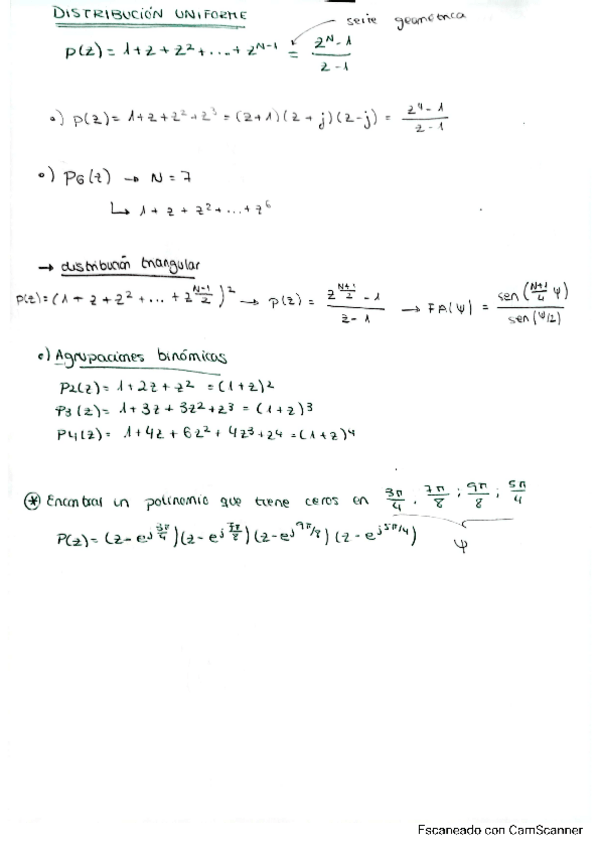 DISTRIBUCIÓN UNIFORME
serie geométrica
P(z) = 1 + z + z² + ... + z^(N-1) = (z^N - 1)/(z - 1)
•) P(z) = 1 + z + z² + z³ = (z+1)(z+j)(z-j) = (z⁴ - 1)/(z - 1)
•) P6(z) → N = 7
↳ 1 + z + z² + ... + z⁶
→ distribución triangular
P(z) = (1 + z + z² + ... + z^((N-1)/2))² → P(z) = (z^((N+1)/2) - 1)/(z - 1) → FA(ψ) = sen((N+1)/4 ψ)/sen(ψ/2)
•) Agrupaciones binómicas
P2(z) = 1 + 2z + z² = (1+z)²
P3(z) = 1 + 3z + 3z² + z³ = (1+z)³
P4(z) = 1 + 4z + 6z² + 4z³ + z4 = (1+z)⁴
⊛ Encontrar un polinomio que tiene ceros en 3π/4, 7π/8; 9π/8; 5π/4
P(z) = (z - e^(j3π/4))(z - e^(j7π/8))(z - e^(j9π/8))(z - e^(j5π/4))
ψ
Escaneado con CamScanner